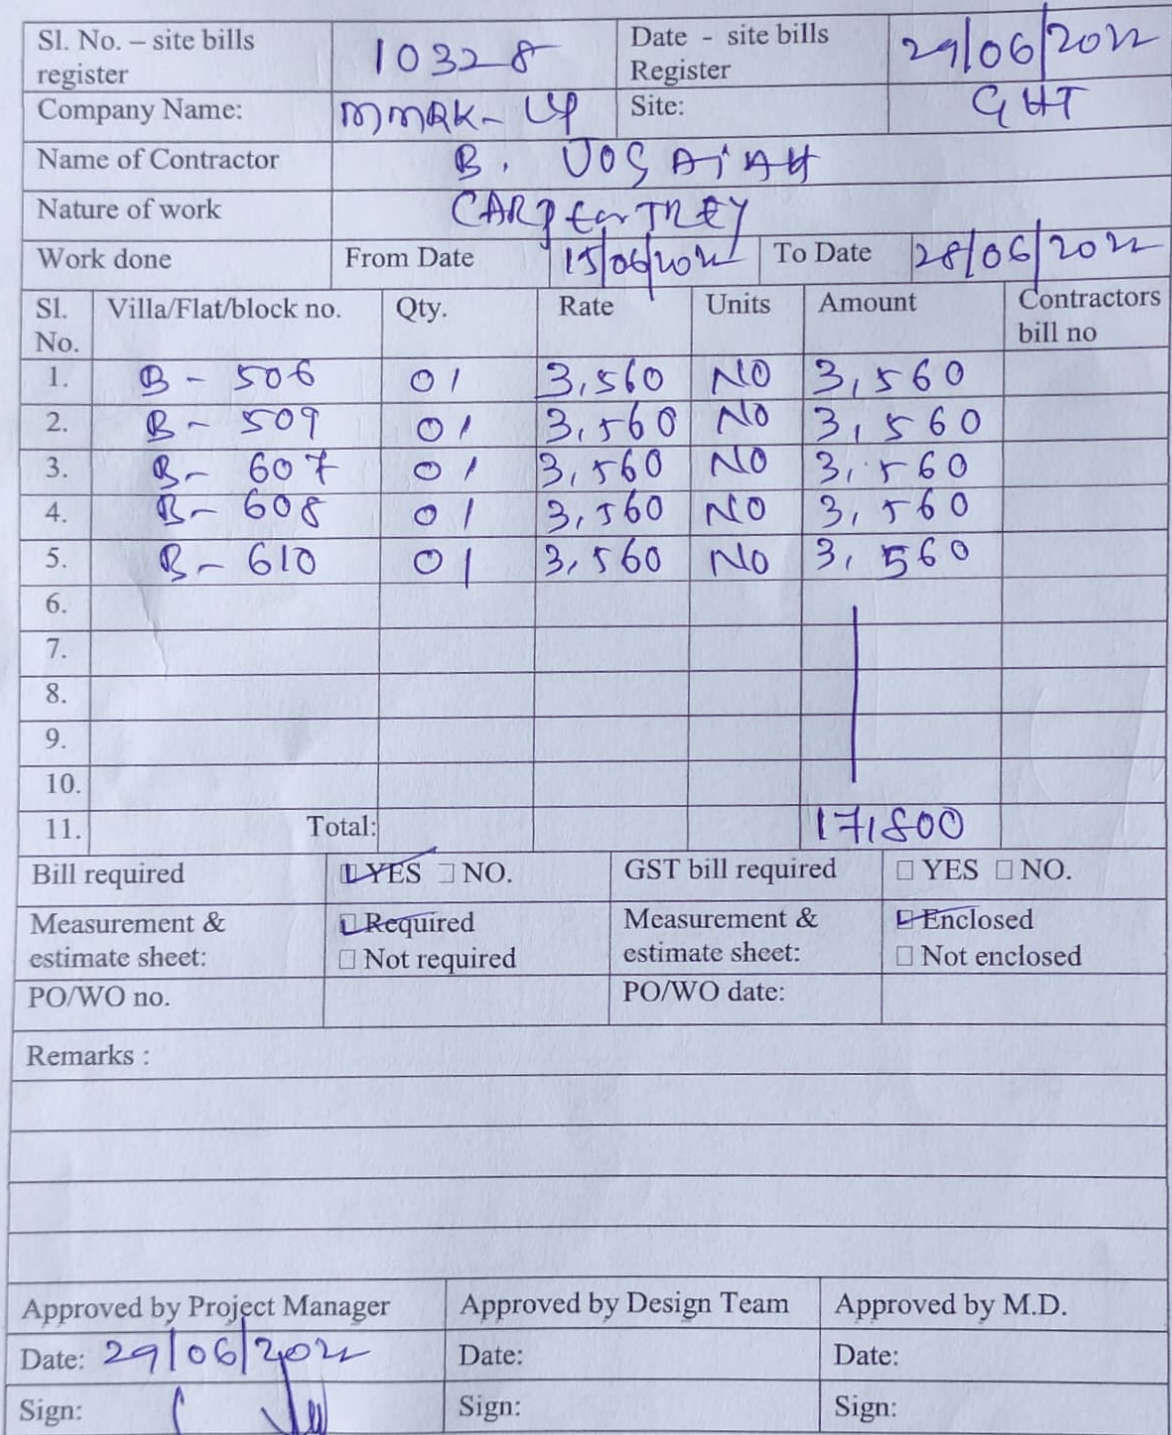 Sl. No. – site bills register 10328 Date - site bills Register 29/06/2022
Company Name: MMRK- LLP Site: GHT
Name of Contractor B. JOGAiAH
Nature of work CARpenTREY
Work done From Date 15/06/2022 To Date 28/06/2022
Sl. No. Villa/Flat/block no. Qty. Rate Units Amount Contractors bill no
1. B - 506 01 3,560 NO 3,560
2. B - 509 01 3,560 NO 3,560
3. B - 607 01 3,560 NO 3,560
4. B - 608 01 3,560 NO 3,560
5. B - 610 01 3,560 NO 3,560
6.
7.
8.
9.
10.
11. Total: 17,800
Bill required YES NO. GST bill required YES NO.
Measurement & estimate sheet: Required Measurement & estimate sheet: Enclosed
Not required Not enclosed
PO/WO no. PO/WO date:
Remarks :
Approved by Project Manager Approved by Design Team Approved by M.D.
Date: 29/06/2022 Date: Date:
Sign: Sign: Sign: